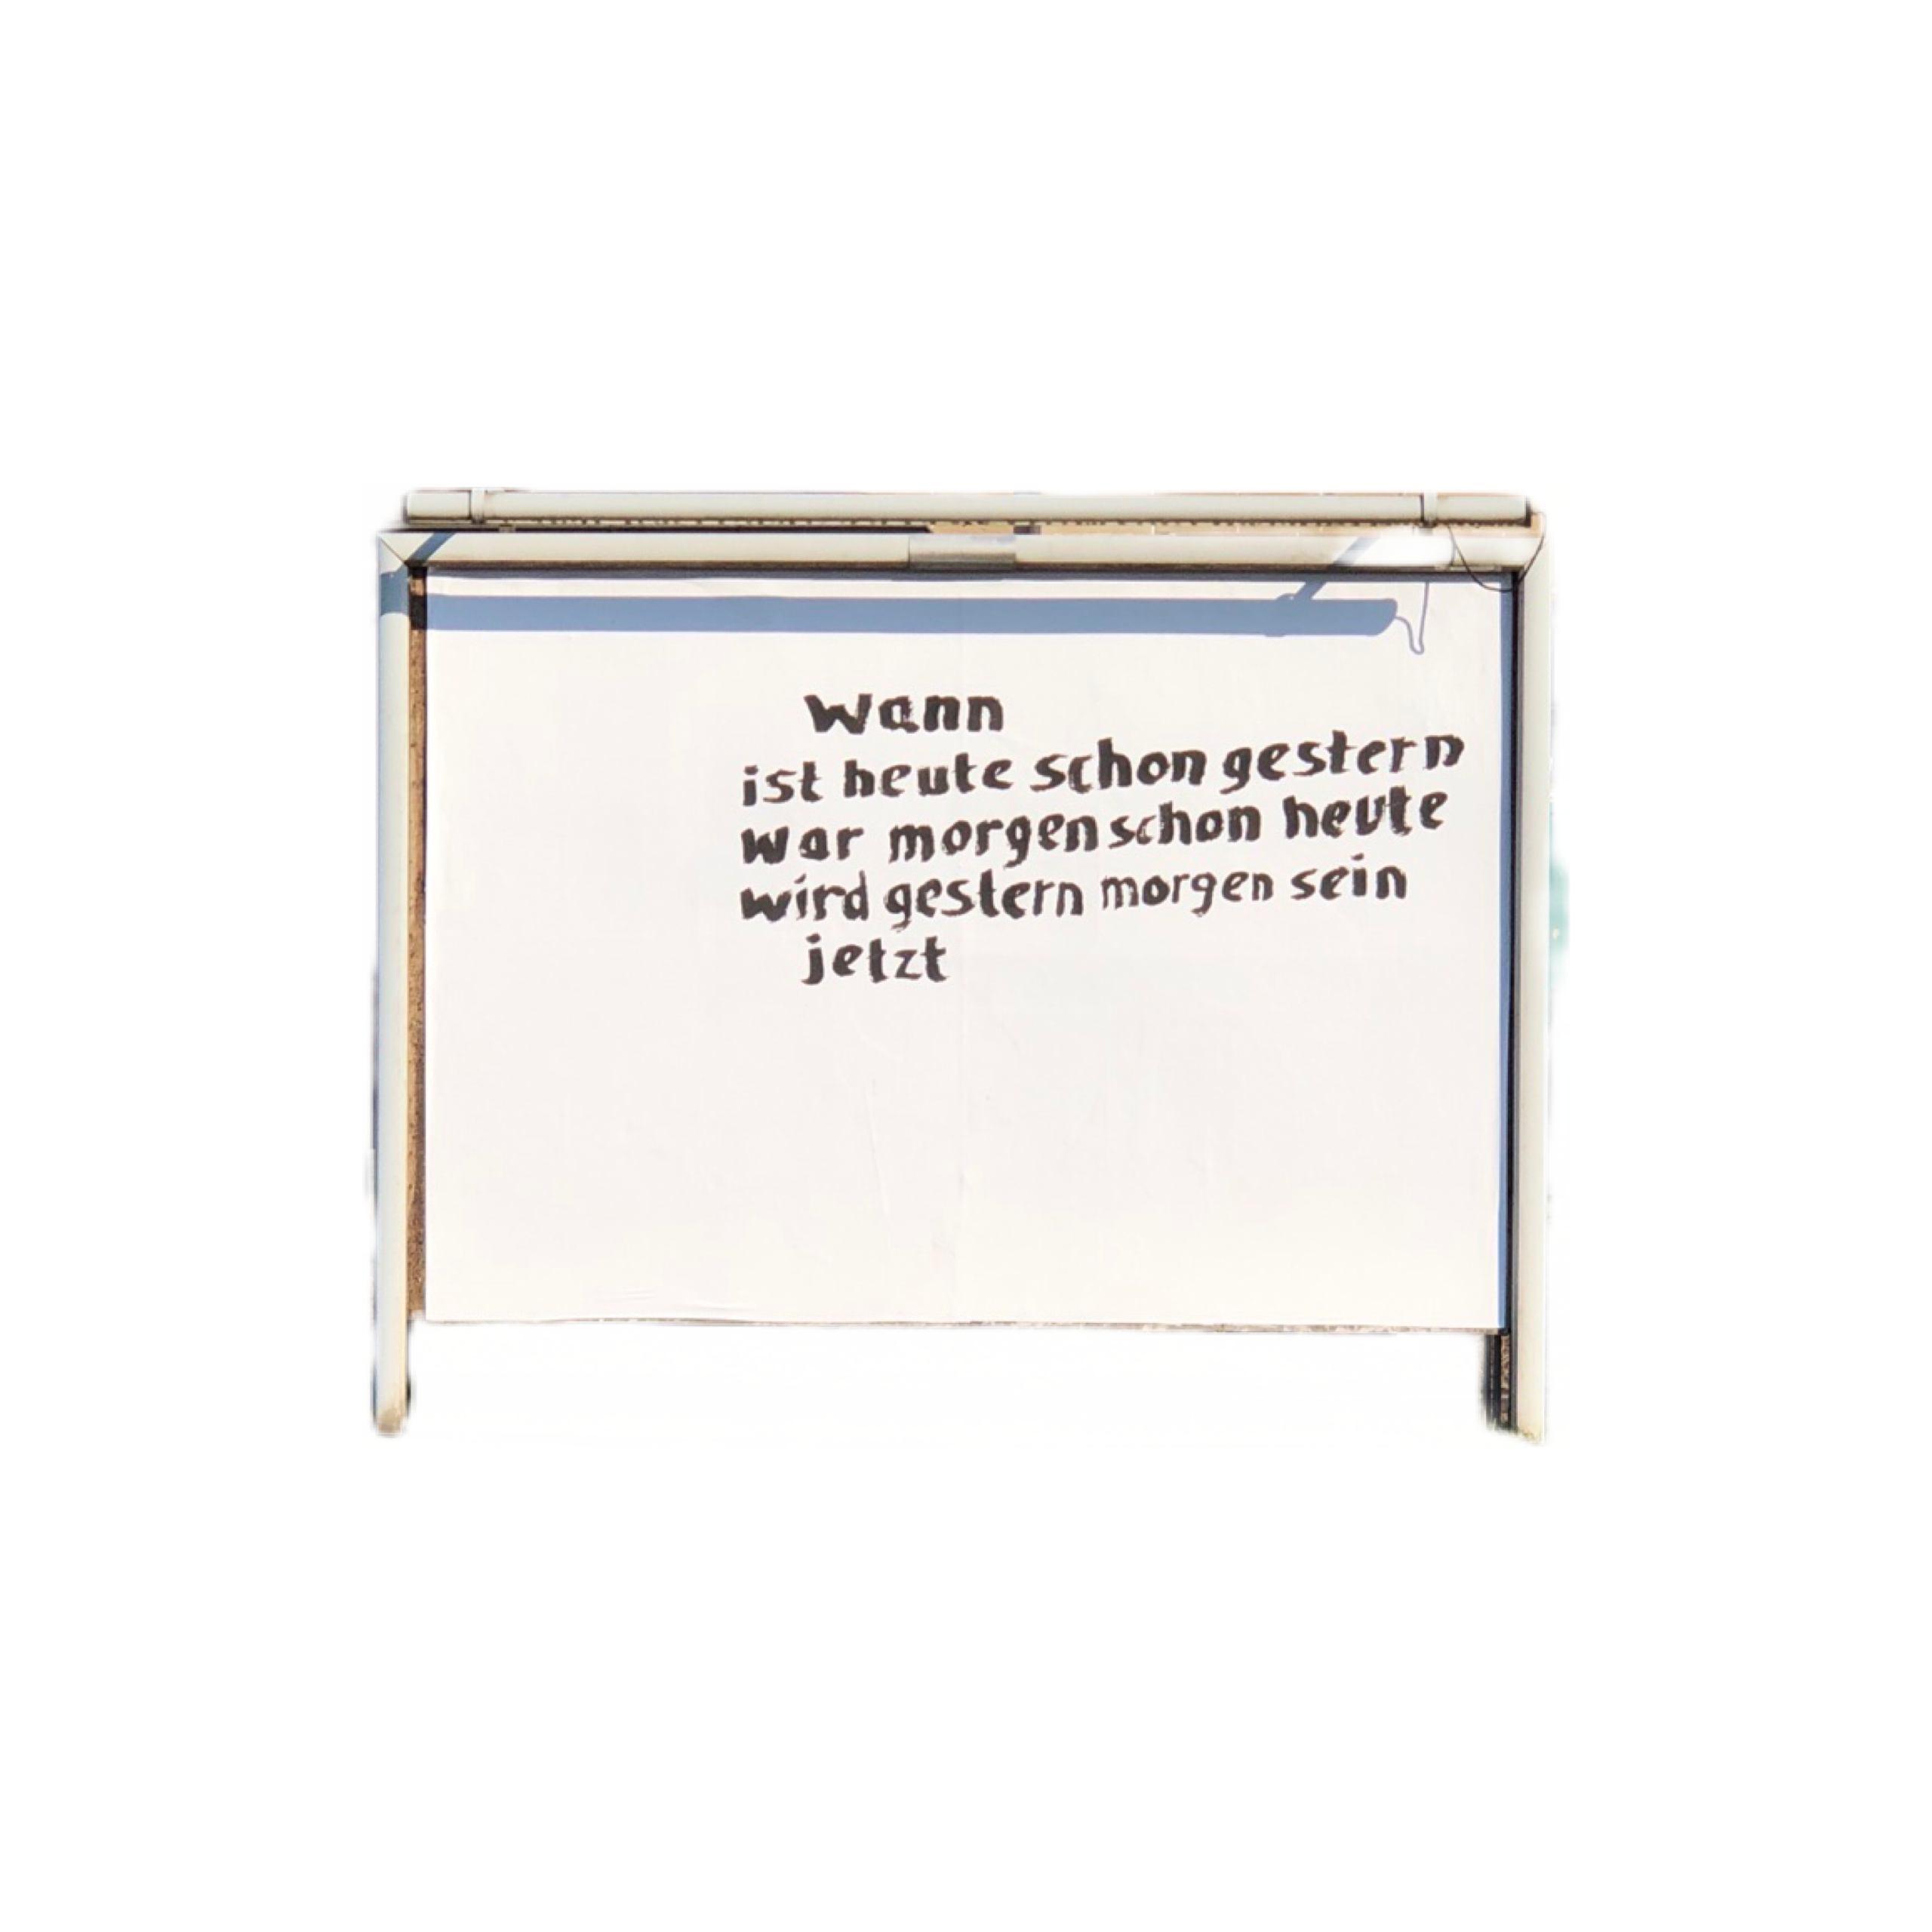 Wann
ist heute schon gestern
war morgen schon heute
wird gestern morgen sein
jetzt